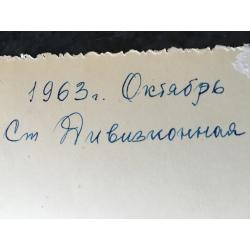 1963г. Октябрь
Ст Дивизионная